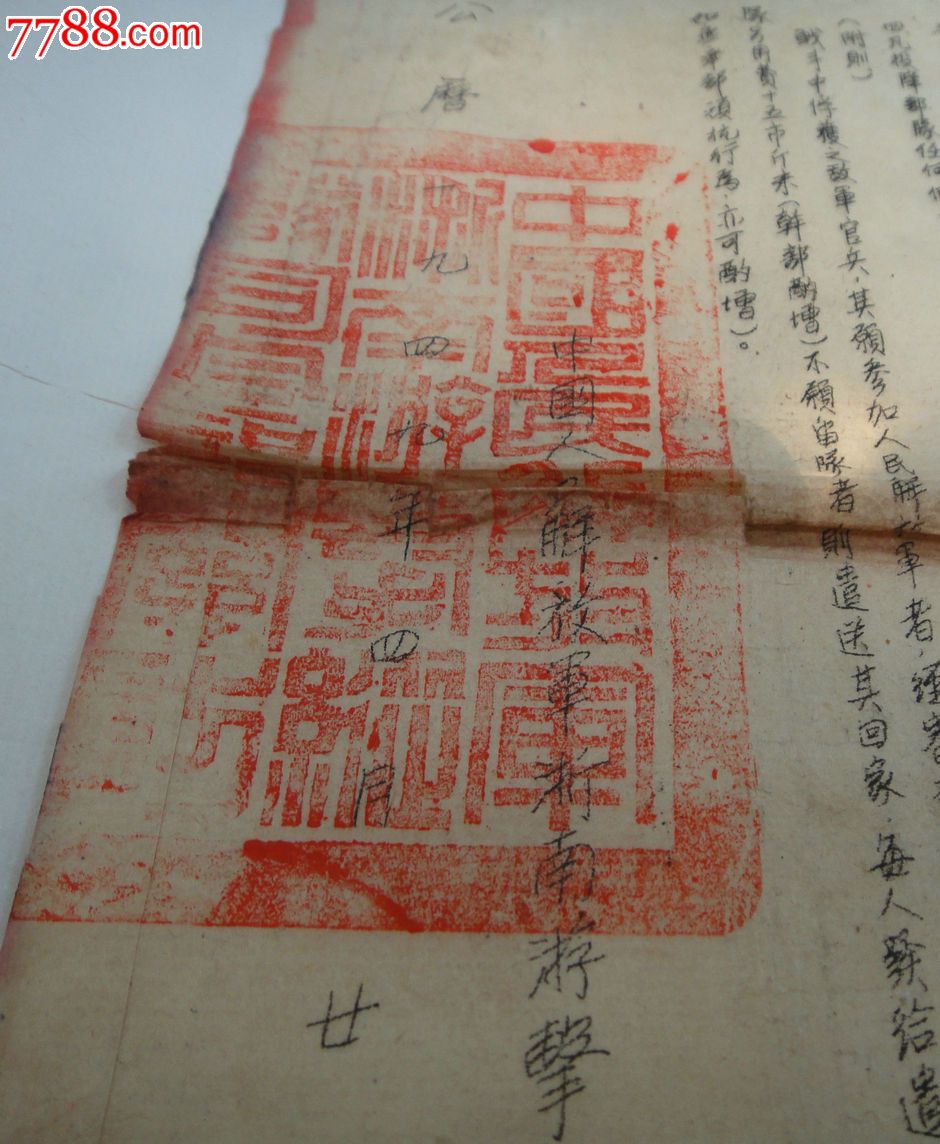 7788.com
四凡投降部隊任何
(附則)
戰斗中俘獲之敵軍官兵，其願參加人民解放軍者，經審
隊員用費十五市斤米(幹部酌增)不願留隊者則遣送其回家，每人發給遣
部頑抗行為，亦可酌增)。
中國人民解放軍浙南游擊
公曆九四九年四月廿
中國人民解放軍